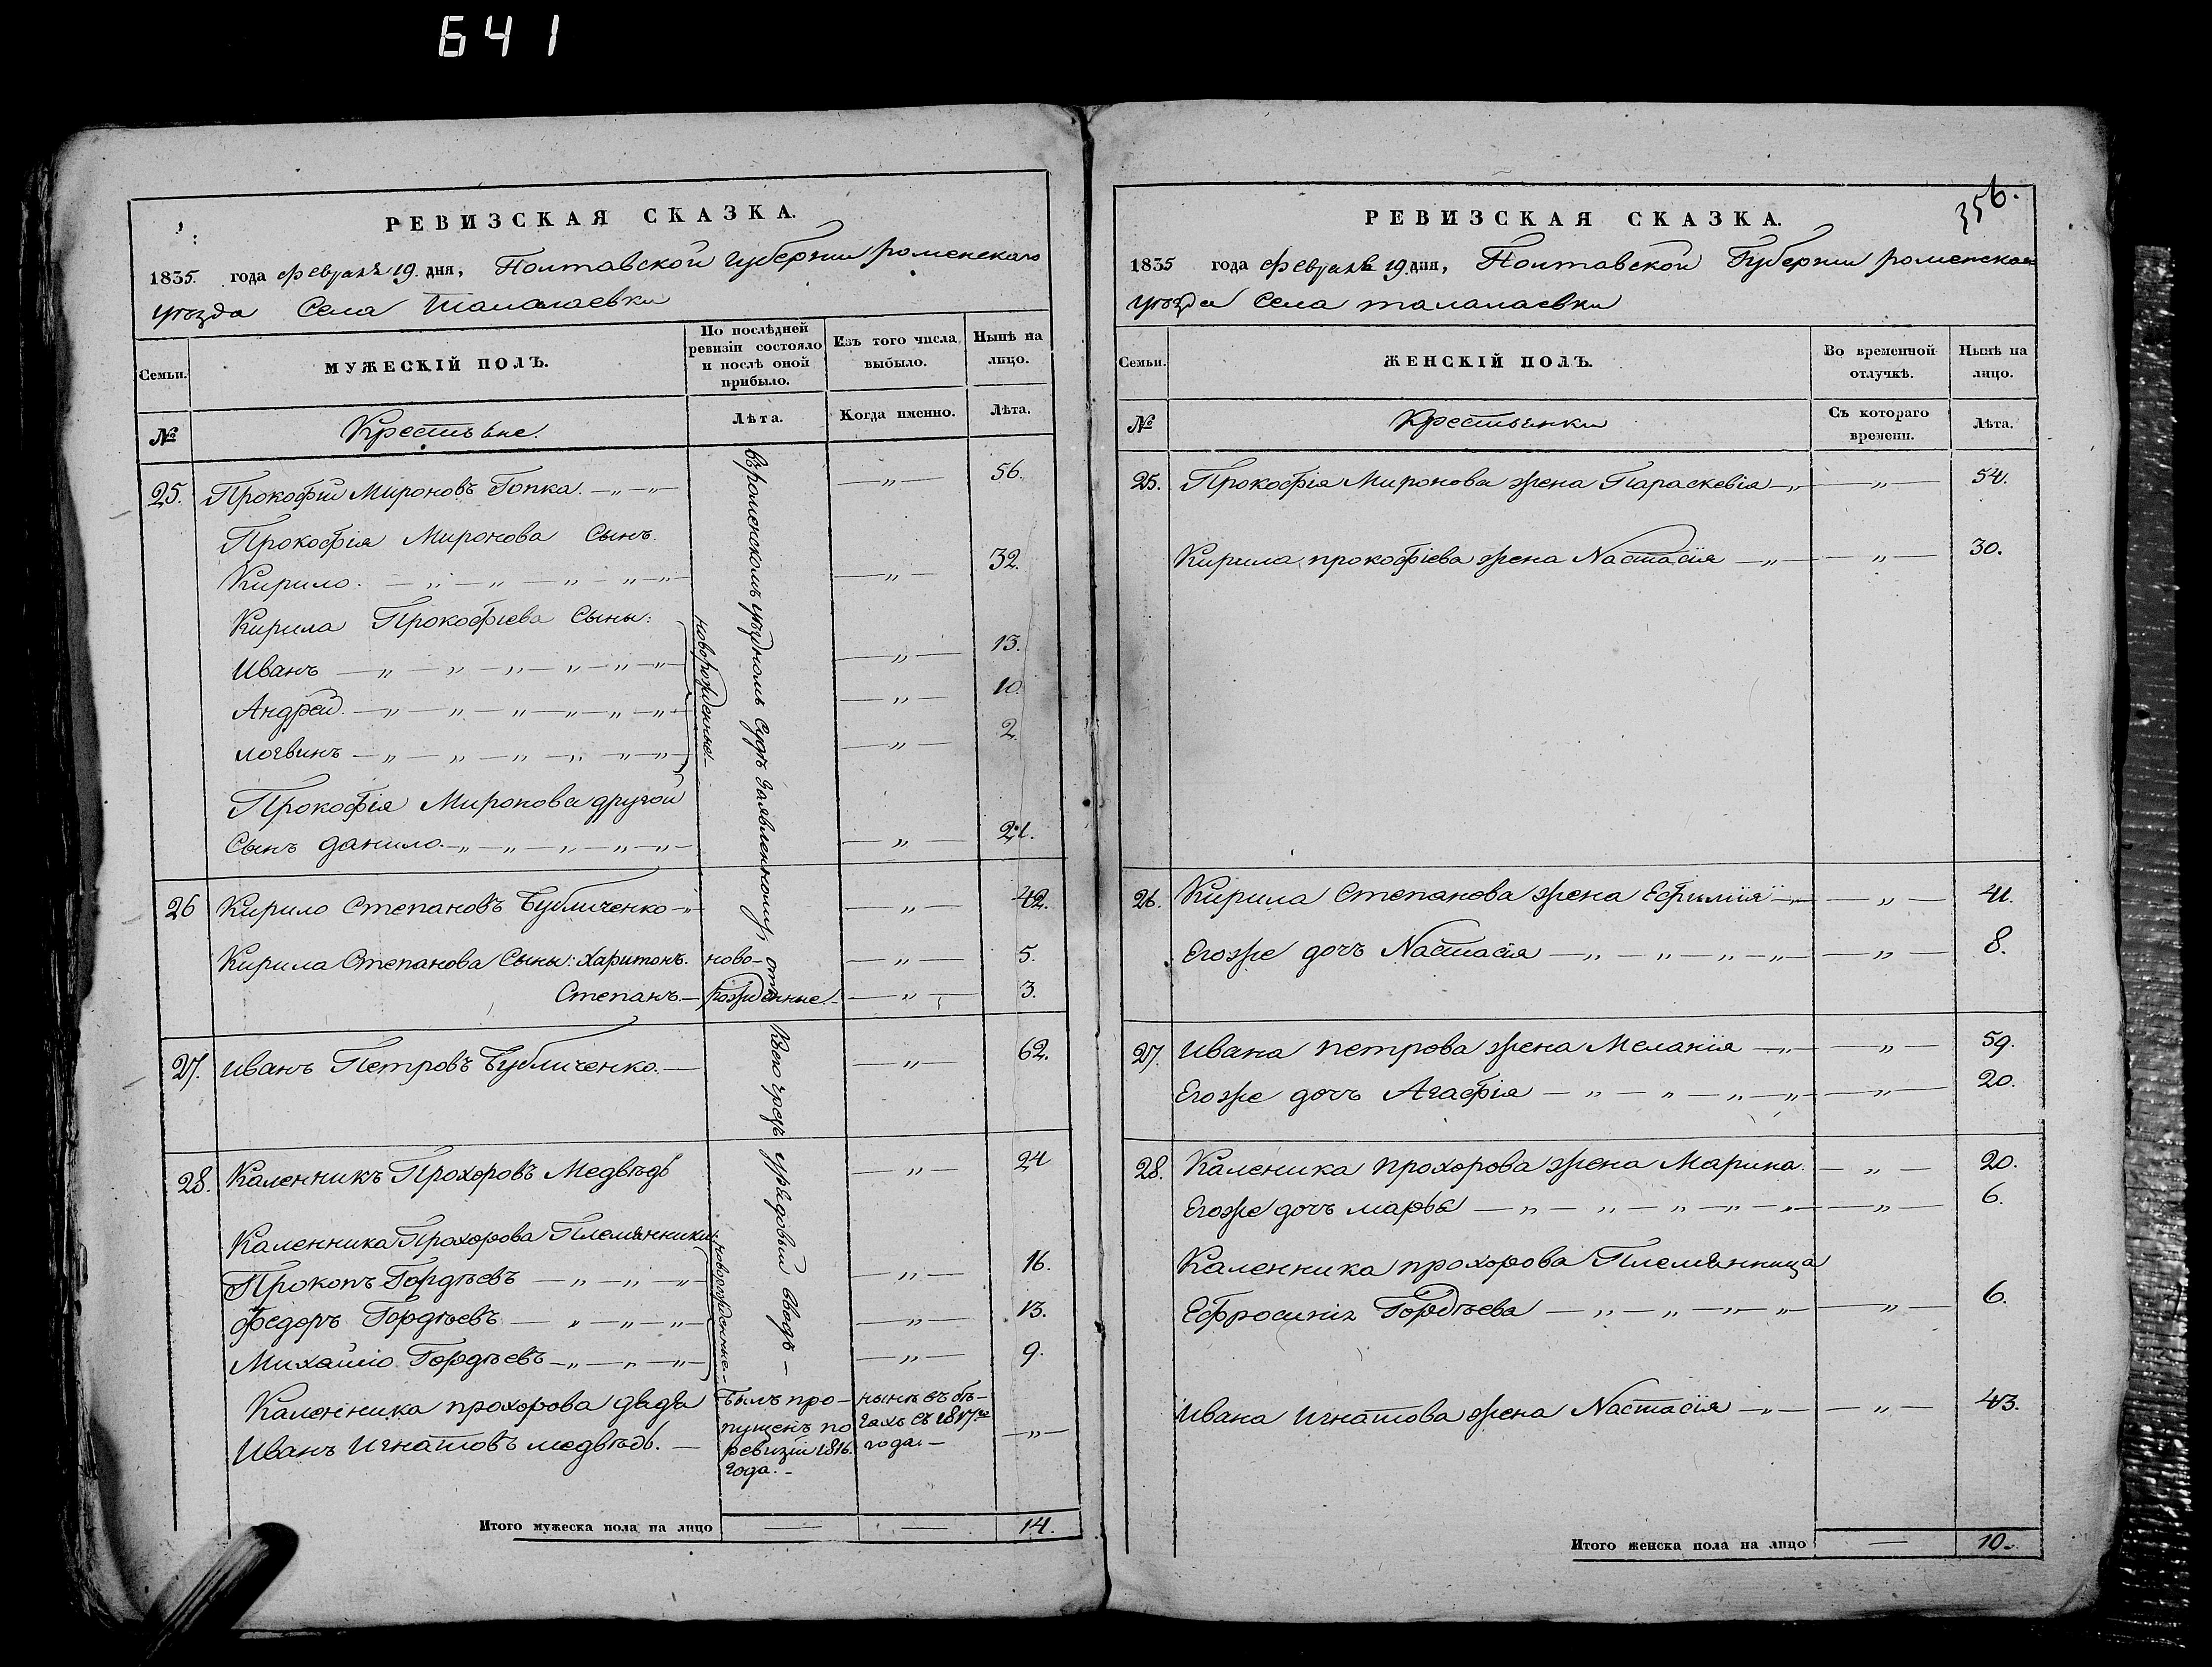 641
РЕВИЗСКАЯ СКАЗКА.
1835. года Февраля 19. дня, Полтавской Губернии роменскаго
уѣзда Села Талалаевки
Семьи.
МУЖЕСКІЙ ПОЛЪ.
По послѣдней ревизіи состояло и послѣ оной прибыло.
Изъ того числа выбыло.
Нынѣ на лицо.
№
Крестьяне.
Лѣта.
Когда именно.
Лѣта.
въ роменскомъ уѣздномъ Судѣ Заявленному, отъ
25. Прокофій Мироновъ Гопка. — „ — „ — — „ — 56.
Прокофія Миронова Сынъ
Кирило. — „ — „ — „ — „ — „ — — „ — 32.
Кирила Прокофіева Сыны:
новорожденные. —
Иванъ — „ — „ — „ — „ — „ — „ — — „ — 13.
Андрей. — „ — „ — „ — „ — „ — „ — — „ — 10.
логвинъ — „ — „ — „ — „ — „ — „ — — „ — 2.
Прокофія Миронова другой
Сынъ данило. — „ — „ — „ — „ — „ — — „ — 21.
26 Кирило Степановъ Бубличенко — „ — — „ — 42.
Кирила Степанова Сыны: Харитонъ. ново- — „ — 5.
Степанъ. — рожденные. — — „ — 3.
27. иванъ Петровъ Бубличенко. — — „ — 62.
28. Каленникъ Прохоровъ Медвѣдь — „ — 24
Каленника Прохорова Племянники:
новорожденные. —
Прокопъ Гордѣевъ — „ — „ — „ — — „ — 16.
федоръ Гордѣевъ — „ — „ — „ — — „ — 13.
Михайло Гордѣевъ — „ — „ — „ — — „ — 9.
Каленника прохорова дядя
Иванъ Игнатовъ медвѣдь. —
Былъ про-
пущенъ по
ревизіи 1816.
года. —
нынѣ въ бѣ-
гахъ съ 1817го
года. —
— „ —
Итого мужеска пола на лицо — — 14.
356.
РЕВИЗСКАЯ СКАЗКА.
1835 года февраля 19 дня, Полтавской Губернии роменскаго
уѣзда Села талалаевки
Семьи.
ЖЕНСКІЙ ПОЛЪ.
Во временной отлучкѣ.
Нынѣ на лицо.
№
Крестьянки
Съ котораго времени.
Лѣта.
25. Прокофія Миронова жена Параскевія — „ — — „ — 54.
Кирила прокофіева жена Настасія — „ — — „ — 30.
26. Кирила Степанова жена Ефимія — „ — — „ — 41.
Егоже дочъ Настасія — „ — „ — „ — „ — — „ — 8.
27. Ивана петрова жена Меланія — „ — — „ — 59.
Егоже дочъ Агафія — „ — „ — „ — „ — — „ — 20.
28. Каленика прохорова жена Марина. — „ — 20.
Егоже дочъ марья — „ — „ — „ — „ — „ — — „ — 6.
Каленника прохорова Племянница
Ефросинія Гордѣева — „ — „ — „ — „ — — „ — 6.
Ивана Игнатова жена Настасія — „ — — „ — 43.
Итого женска пола на лицо — 10.